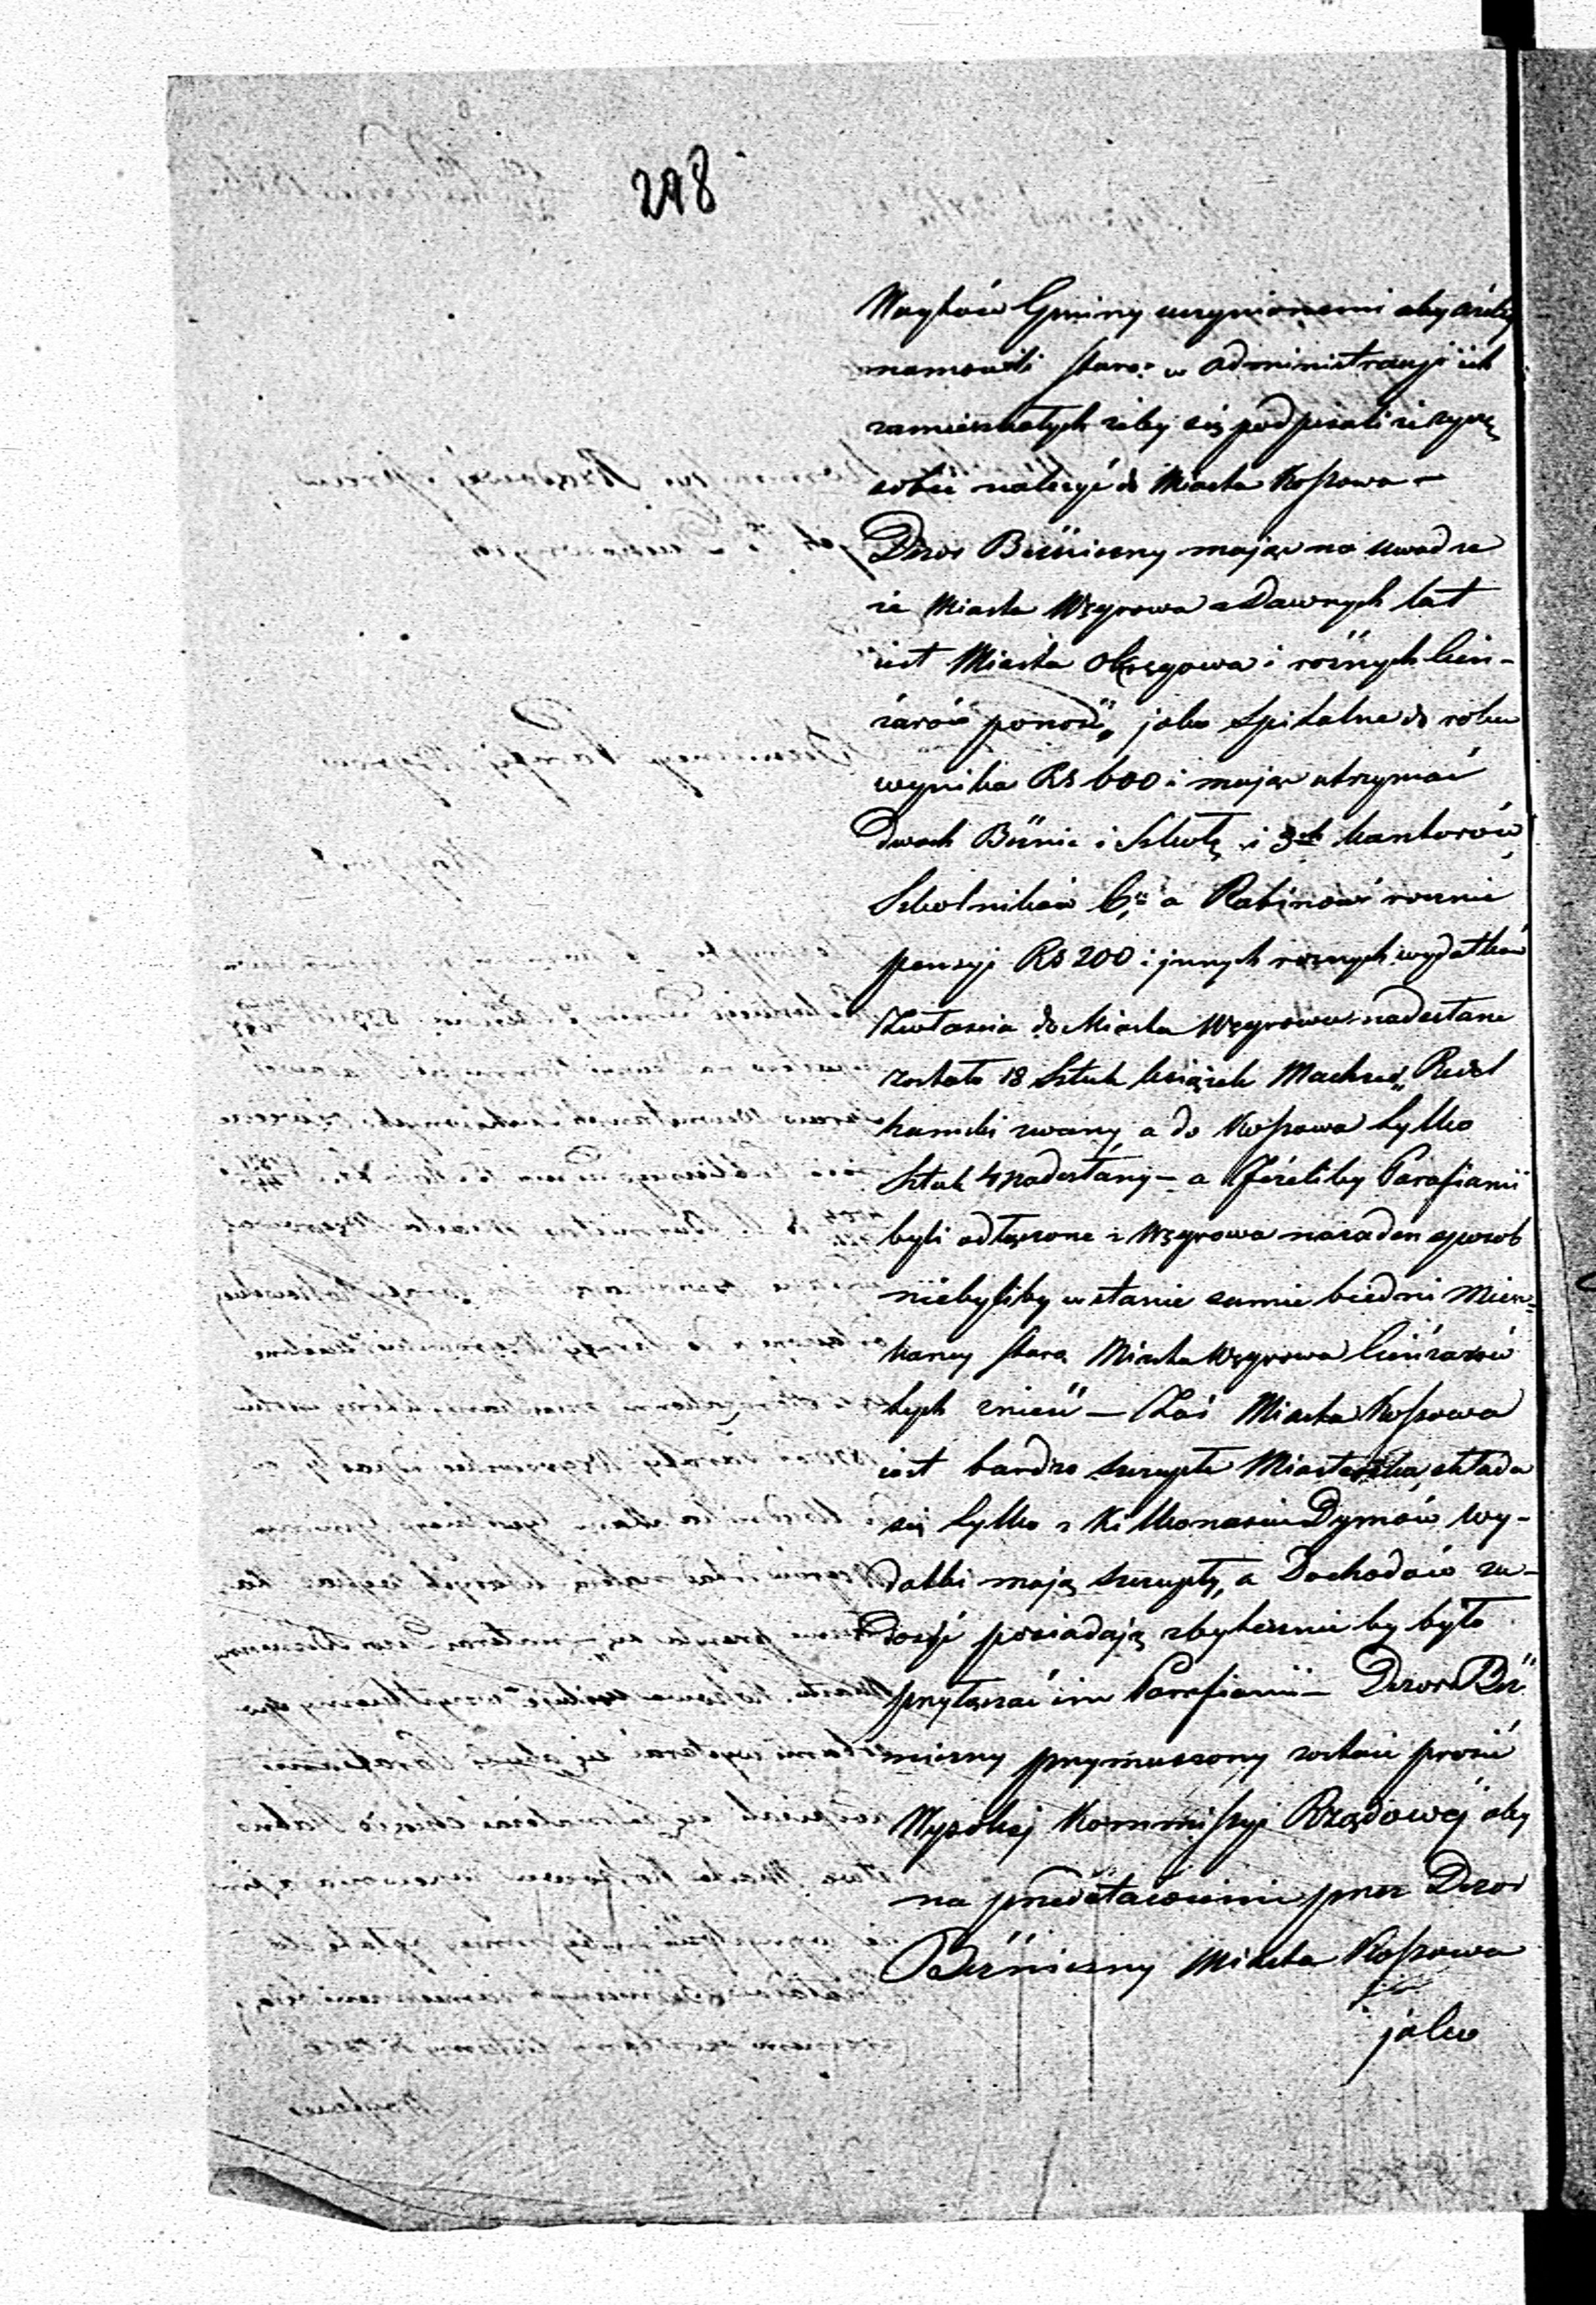 298
Woytów Gminy uczynionemi aby ażeby
namowili staro: w administracyi ich
zamieszkałych żeby się podpisali iż życzą
sobie należyć do Miasta Kossowa –
Dozór Bużniczny mając na uwadze
że Miasta Węgrowa z Dawnych lat
iest Miasta Okręgowa i rożnych Cień-
żarów ponosi, jako Spitalne do roku
wynika RS 600 i mając utrzymać
Dwoch Bużnic i Szkołę i 3ch kantorów
Szkolników 6, a Rabinow rocznie
pensyi RS 200 i jnnych rożnych wydatków
Zwłaszcia do Miasta Węgrowa nadesłane
zostało 18 Sztuk książek Machzor, Redel
hamski zwany a do Kossowa tylko
Sztuk 4 nadesłany – a Jeżeliby Parafianii
byli odłączone z Węgrowa na żaden sposob
niebyliby w stanie samie biedni Miesz-
kancy staro: Miasta Węgrowa Cieńżarów
tych znieść – Zaś Miasta Kossowa
iest bardzo szczupłe Miasteczka, składa
się tylko z Kilkonaście Dymów, Wy-
datki mają szczupłe, a Dochodów za-
dosyć posiadają zbytecznie by było
przyłączać im Parafianii – Dozór Buż
niczny przymuszony zostaie prosić
Wysokiej Kommissyi Rządowej aby
na przedstawienie przez Dozor
Bużniczny Miasta Kossowa
jako